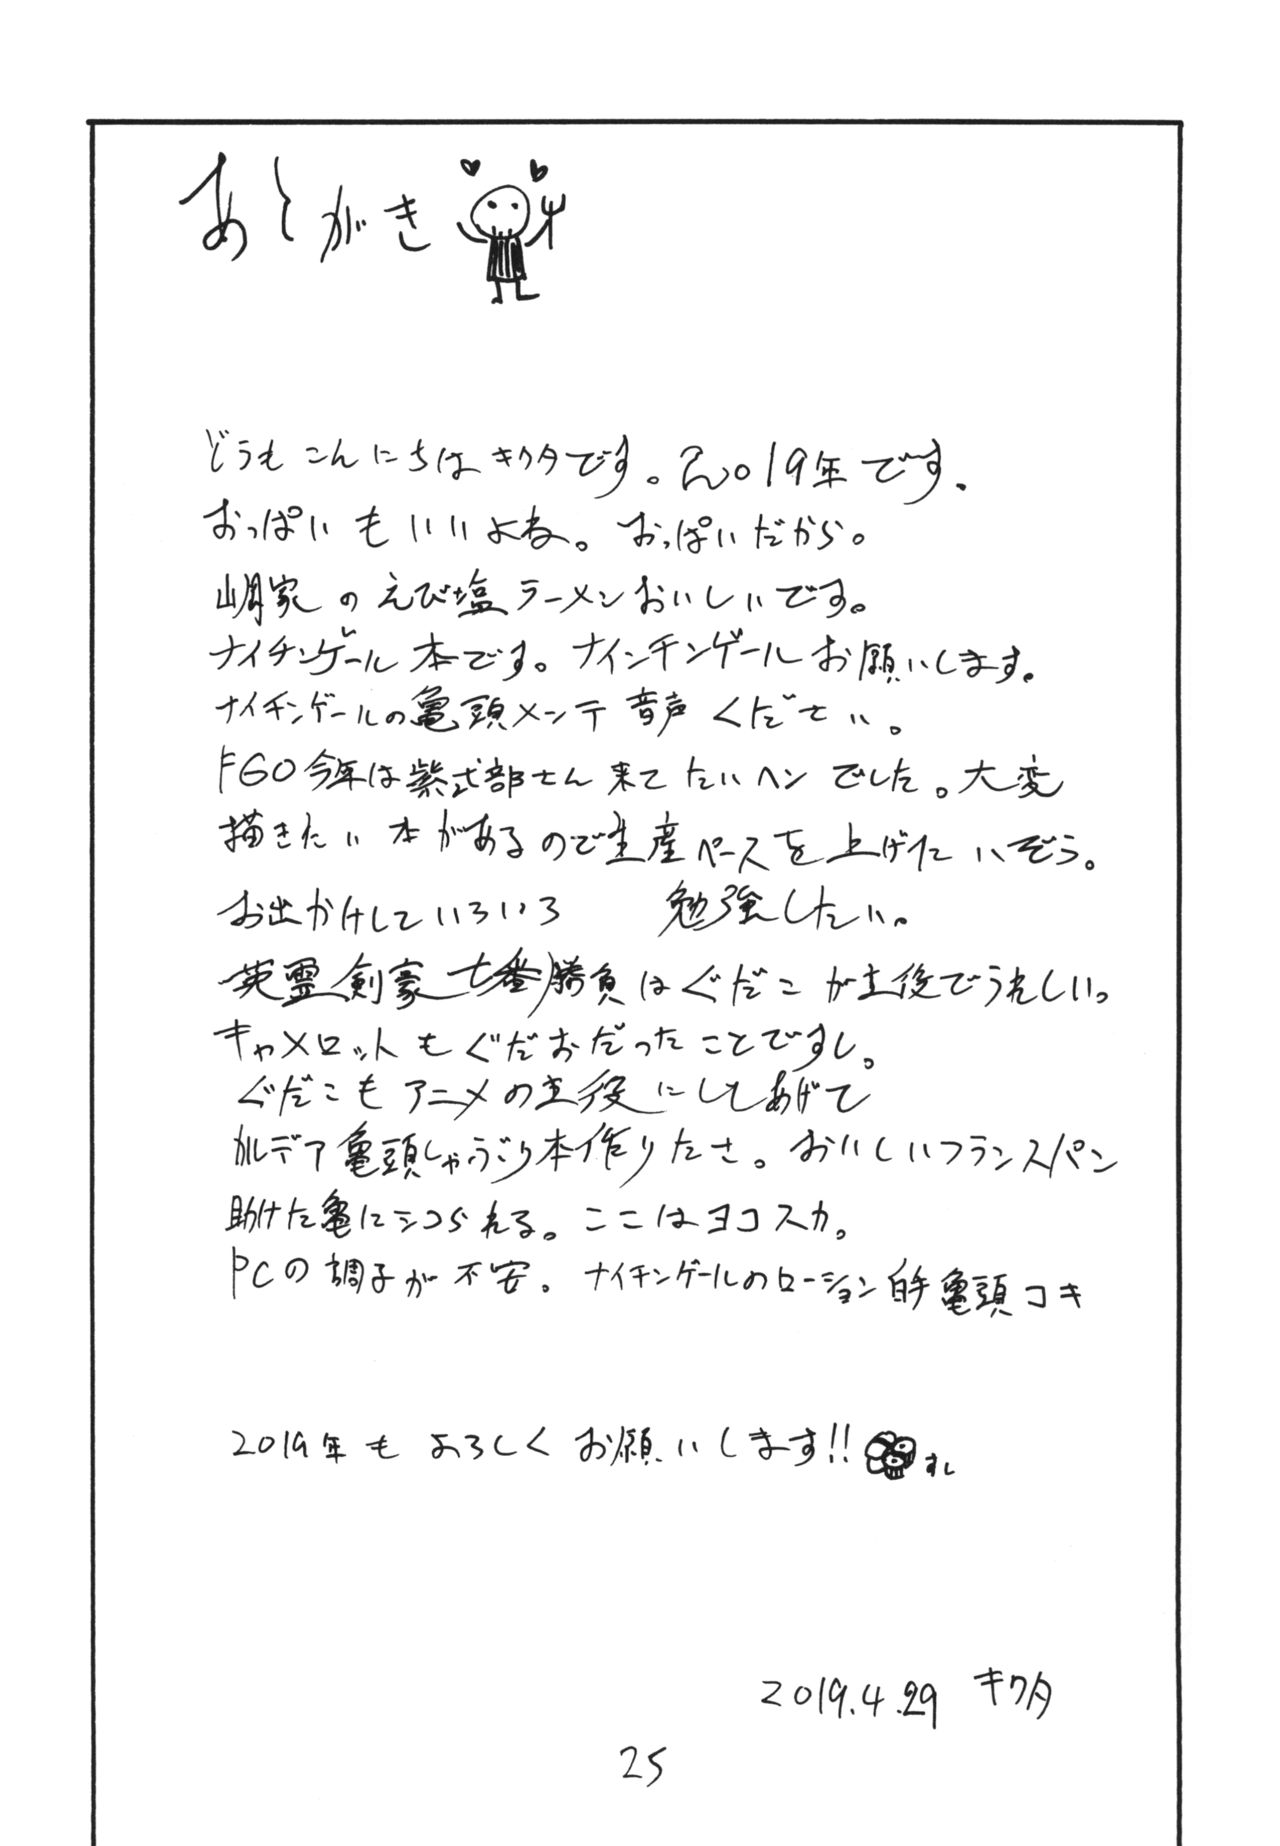 あとがき
どうも こんにちは キクタです。2019年です。
おっぱいもいいよね。おっぱいだから。
家のえび塩ラーメンおいしいです。
ナイチンゲール本です。ナインチンゲールお願いします。
ナイチンゲールの亀頭メンテ音声ください。
FGO今年は紫式部さん来てたいヘンでした。大変
描きたい本があるので生産ペースを上げたいぞう。
お出かけしていろいろ 勉強したい。
英霊剣豪七番勝負はぐだこが主役でうれしい。
キャメロットもぐだおだったことですし。
ぐだこもアニメの主役にしてあげて
カルデア亀頭しゃぶり本作りたさ。おいしいフランスパン
助けた亀にシコられる。ここはヨコスカ。
PCの調子が不安。ナイチンゲールのローション白手亀頭コキ
2019年もよろしくお願いします!!
すし
2019.4.29 キクタ
25